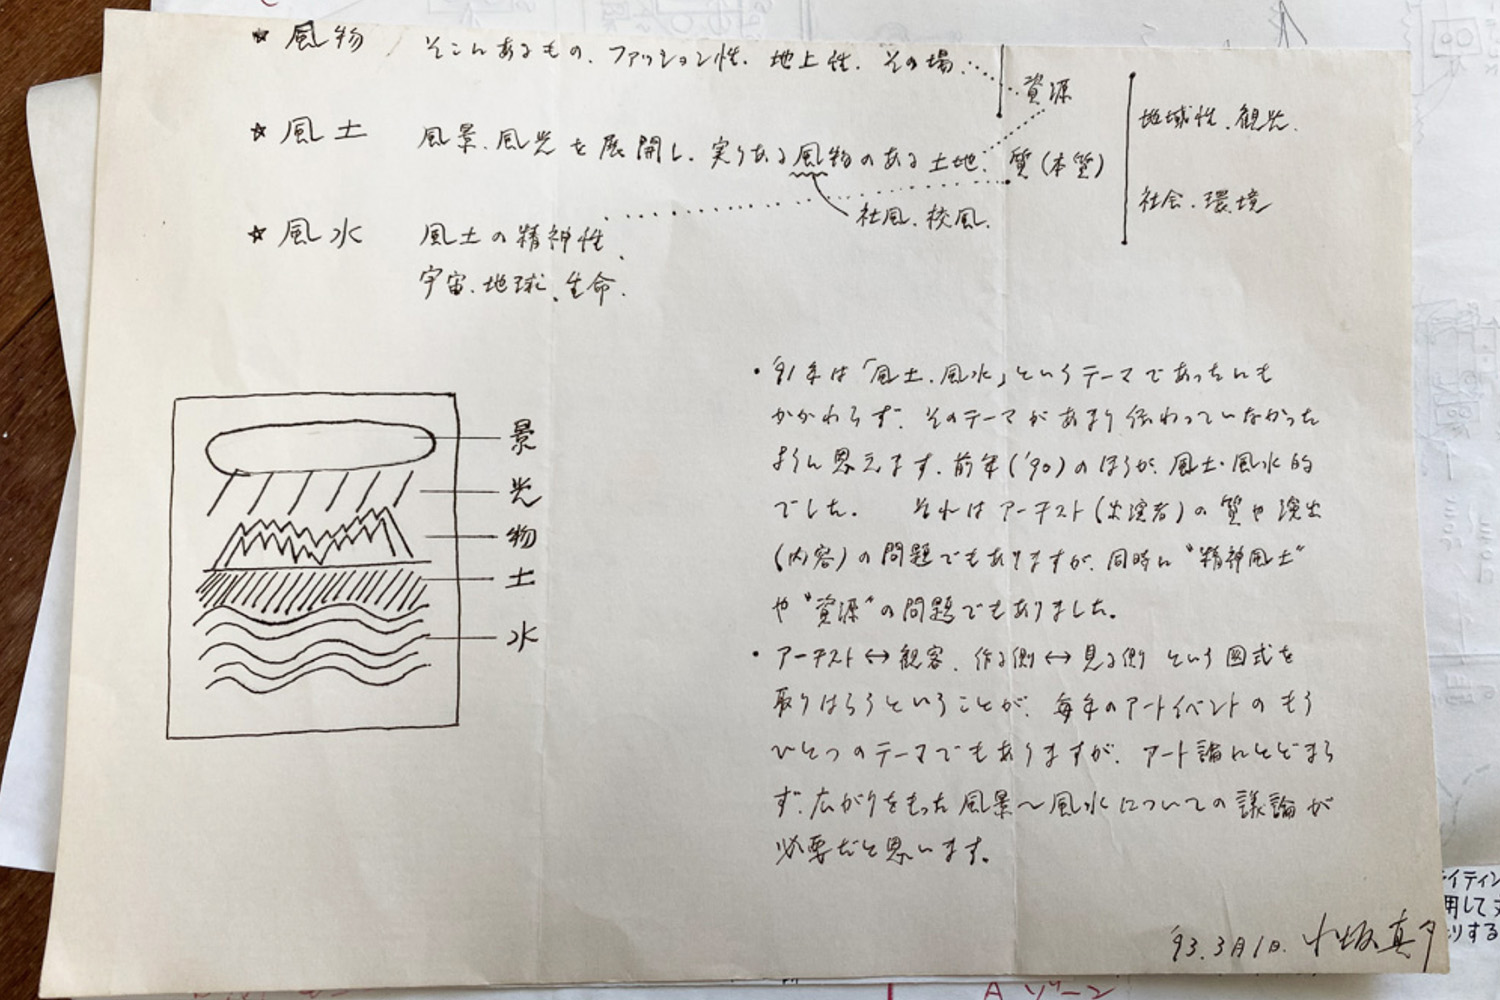 ★ 風物 そこにあるもの、ファッション性、地上性、その場、
資源
★ 風土 風景、風光を展開し、実りある風物のある土地、
質(本質)
社風、校風、
地域性、観光、
社会、環境
★ 風水 風土の精神性、
宇宙、地球、生命、
景
光
物
土
水
・'91年は「風土、風水」というテーマであったにも
かかわらず、そのテーマがあまり伝わっていなかった
ように思えます。前年('90)のほうが、風土・風水的
でした。 それはアーチスト(出演者)の質や演出
(内容)の問題でもありますが、同時に"精神風土"
や"資源"の問題でもありました。
・アーチスト↔観客、作る側↔見る側という図式を
取りはらうということが、毎年のアートイベントのもう
ひとつのテーマでもありますが、アート論にとどまら
ず、広がりをもった風景〜風水についての議論が
必要だと思います。
'93.3月1日.
イティン
用して
りする
Aゾーン